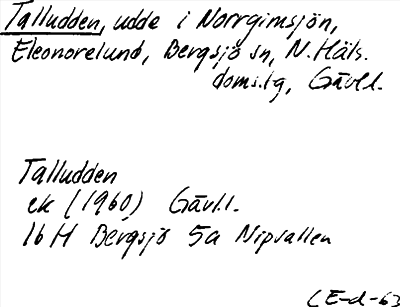 Talludden, udde i Norrgimsjön,
Eleonorelund, Bergsjö sn, N. Häls.
doms.lg, Gävl.l.
Talludden
ek (1960) Gävl.l.
16 H Bergsjö 5a Nipvallen
(E-d-63